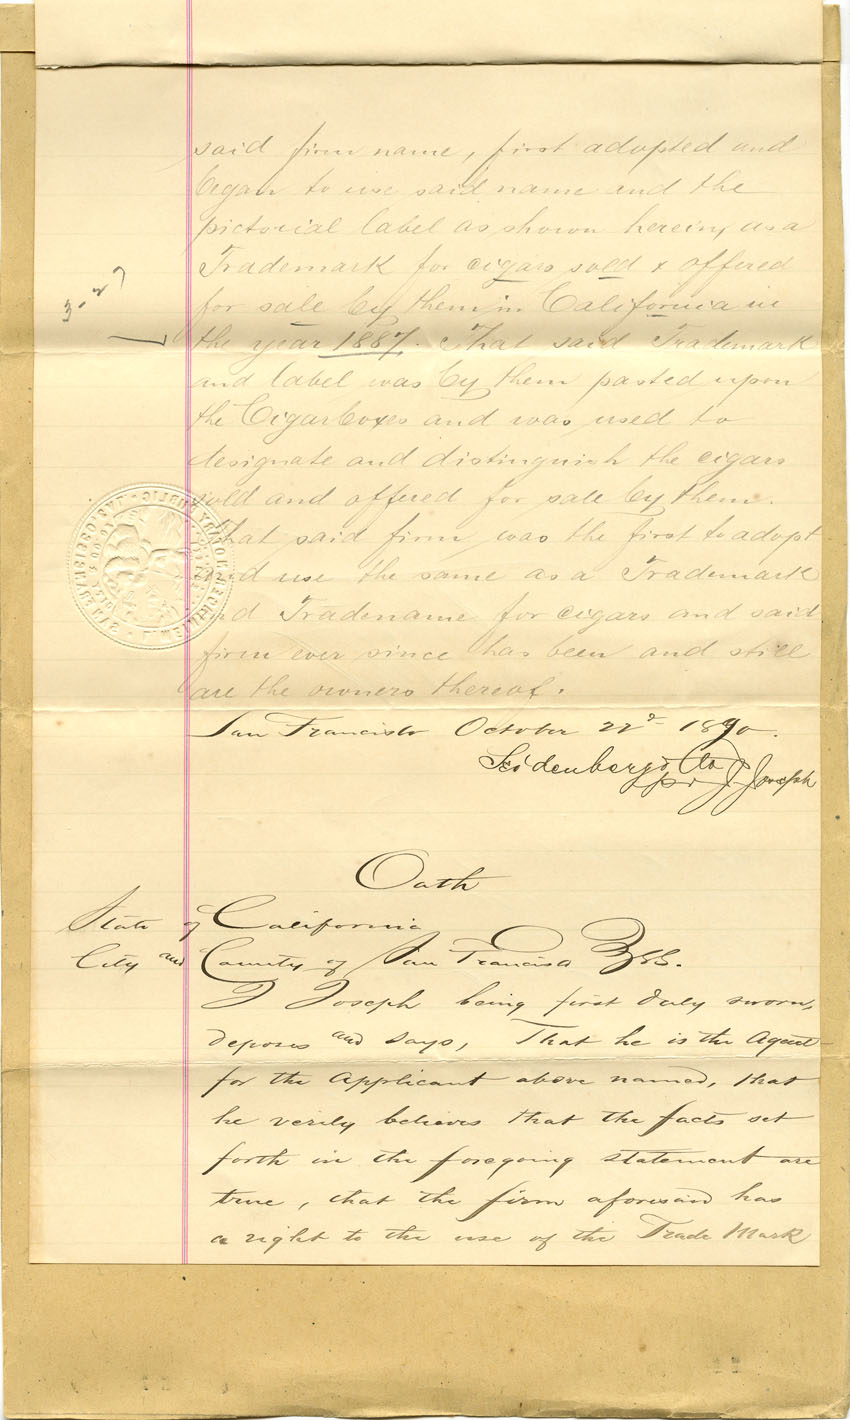 said firm name, first adopted and
began to use said name and the
pictorial label as shown herein, as a
Trademark for cigars sold & offered
for sale by them in California in
the year 1887. That said Trademark
and label was by them pasted upon
the Cigar boxes and was used to
designate and distinguish the cigars
sold and offered for sale by them.
That said firm was the first to adopt
and use the same as a Trademark
and Tradename for cigars and said
firm ever since has been and still
are the owners thereof.
San Francisco October 22d 1890.
Seidenberg & Co
J Joseph
3-27
Oath
State of California
City and County of San Francisco } SS.
J Joseph being first duly sworn,
deposes and says, That he is the Agent
for the Applicant above named, that
he verily believes that the facts set
forth in the foregoing statement are
true, that the firm aforesaid has
a right to the use of the Trade Mark